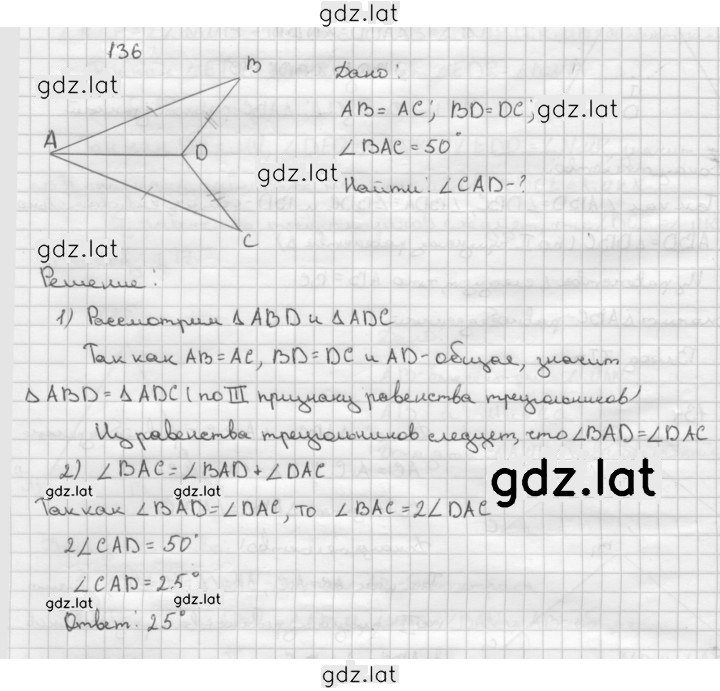 gdz.lat
136
B
Дано:
gdz.lat
AB = AC; BD = DC; gdz.lat
A
D
∠BAC = 50°
gdz.lat
Найти: ∠CAD - ?
C
gdz.lat
Решение:
1) Рассмотрим △ABD и △ADC
Так как AB = AC, BD = DC и AD - общая, значит
△ABD = △ADC (по III признаку равенства треугольников)
Из равенства треугольников следует, что ∠BAD = ∠DAC
2) ∠BAC = ∠BAD + ∠DAC
gdz.lat
gdz.lat gdz.lat
Так как ∠BAD = ∠DAC, то ∠BAC = 2∠DAC
2∠CAD = 50°
∠CAD = 25°
gdz.lat gdz.lat
Ответ: 25°
gdz.lat